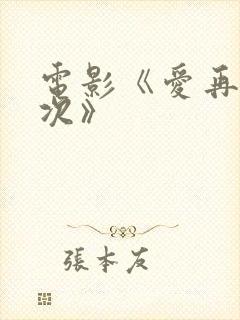 電影《愛再
次》
張本友